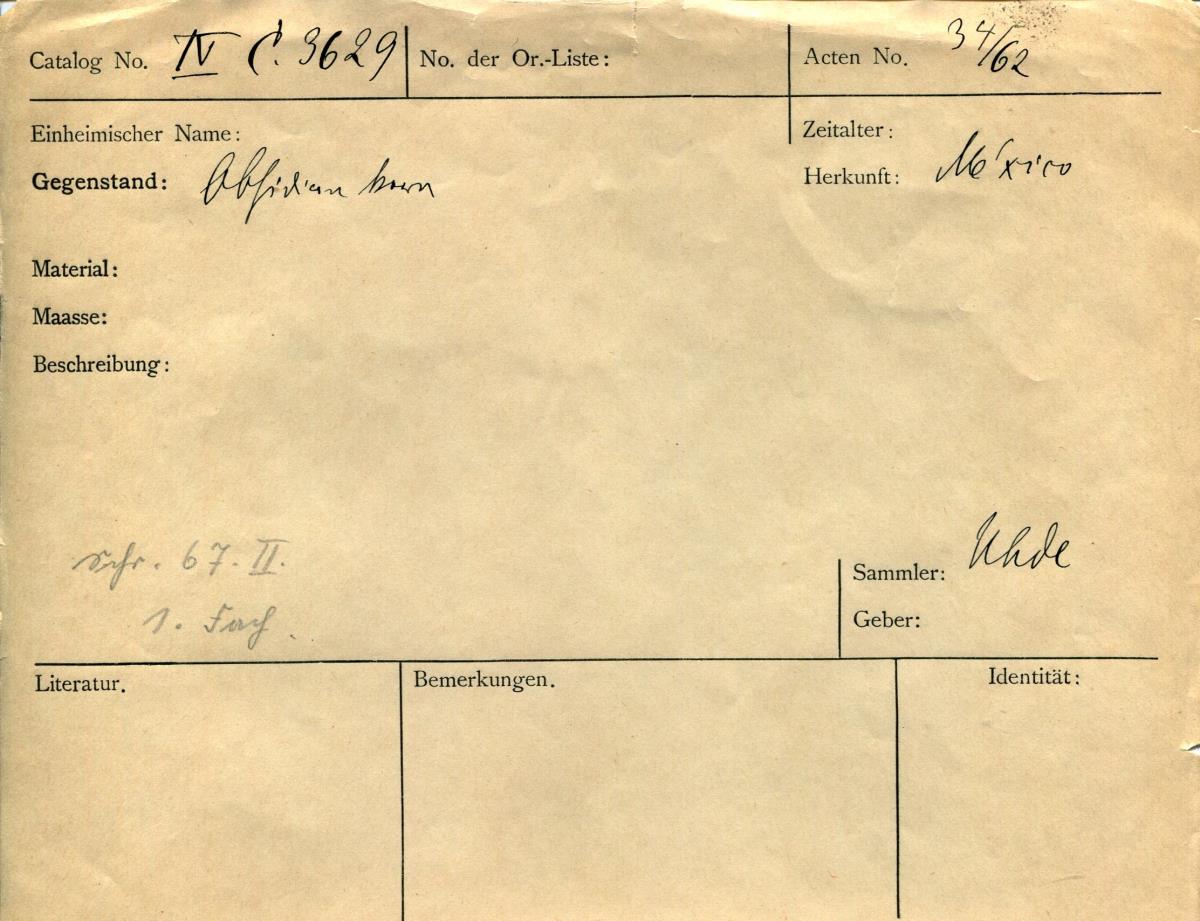 Catalog No. IV C. 3629 No. der Or.-Liste: Acten No. 34/62
Einheimischer Name: Zeitalter:
Gegenstand: Obsidian kern Herkunft: México
Material:
Maasse:
Beschreibung:
Schr. 67. II.
1. Fach
Sammler: Uhde
Geber:
Literatur. Bemerkungen. Identität: